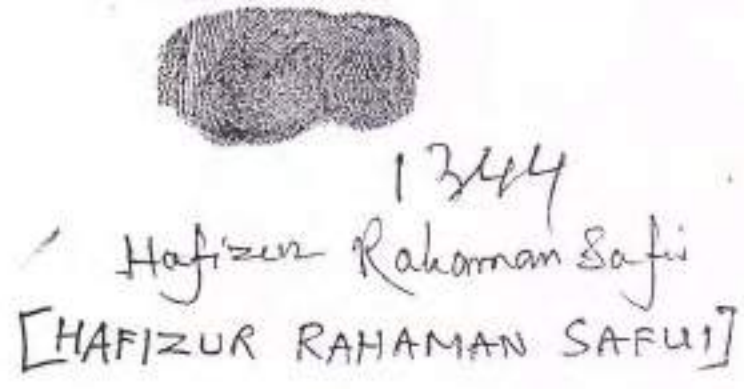 1344
Hafizur Rahaman Safui
[HAFIZUR RAHAMAN SAFUI]